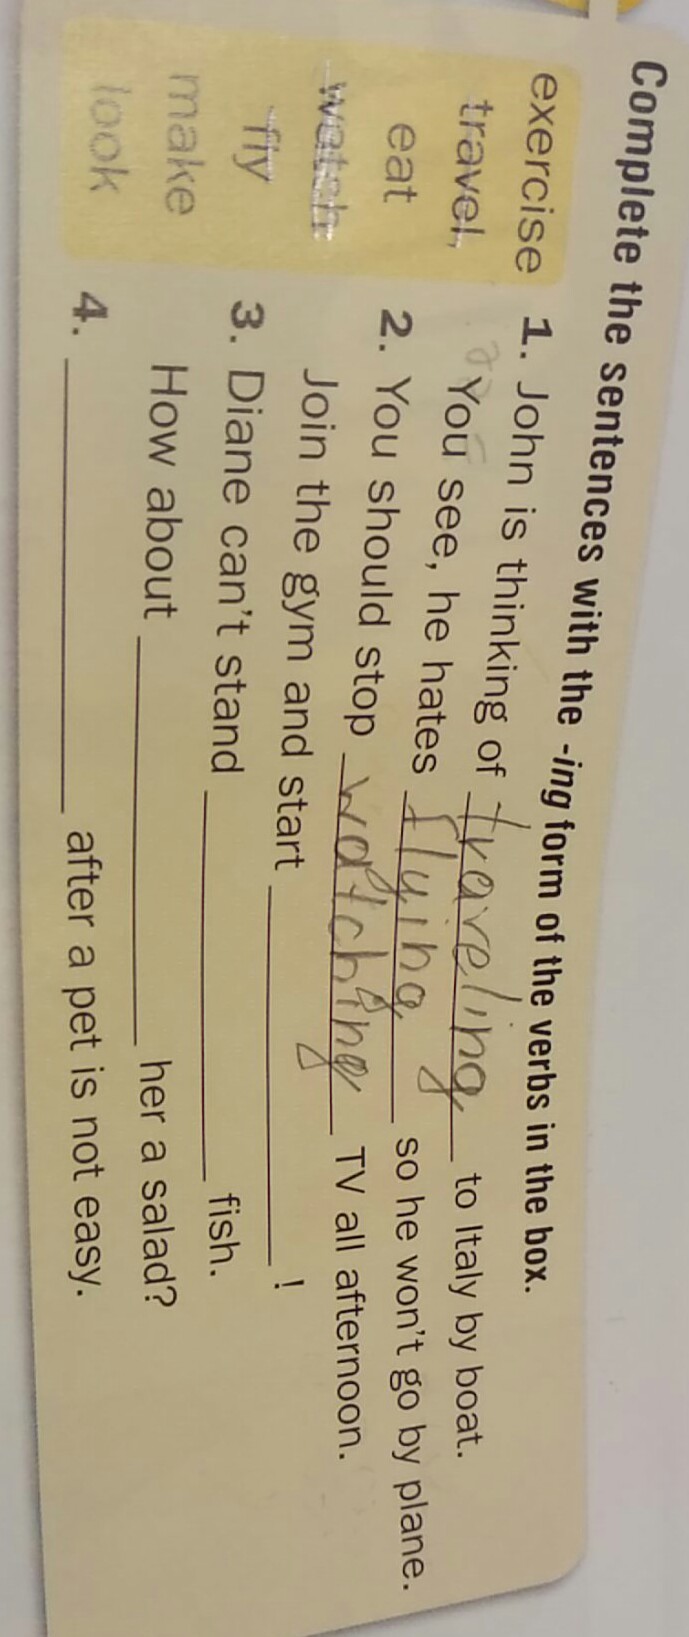 Complete the sentences with the -ing form of the verbs in the box.
exercise
travel,
eat
watch
fly
make
look
1. John is thinking of traveling to Italy by boat.
You see, he hates flying so he won't go by plane.
2. You should stop watching TV all afternoon.
Join the gym and start !
3. Diane can't stand fish.
How about her a salad?
4. after a pet is not easy.